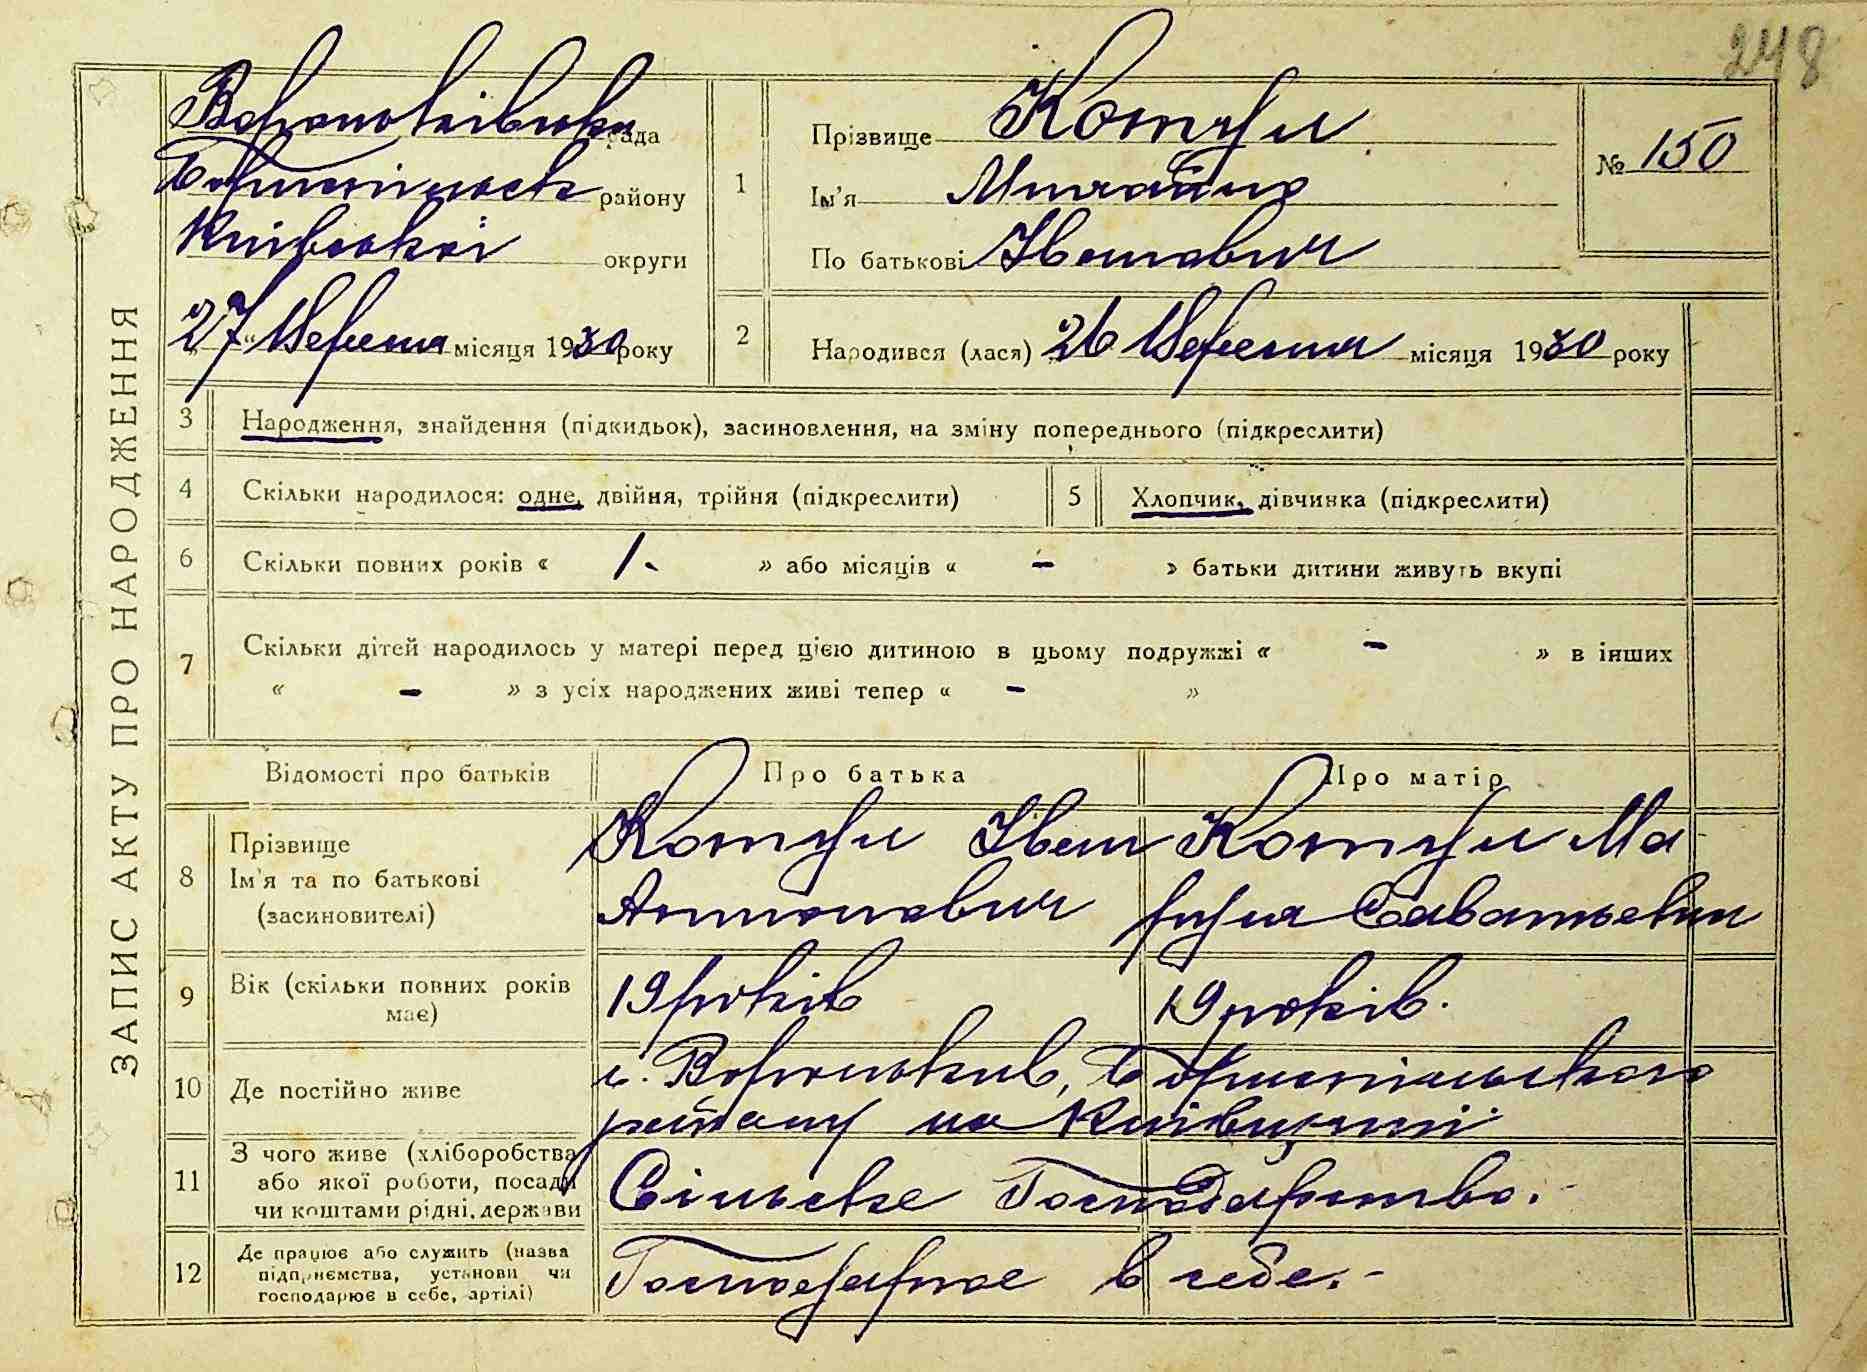 248
ЗАПИС АКТУ ПРО НАРОДЖЕННЯ
Вороньківська рада
Бориспільськ району
Київської округи
„27“ Вересня місяця 1930 року
1
Прізвище Коцур
Ім'я Михайло
По батькові Іванович
№ 150
2
Народився (лася) 26 Вересня місяця 1930 року
3 Народження, знайдення (підкидьок), засиновлення, на зміну попереднього (підкреслити)
4 Скільки народилося: одне, двійня, трійня (підкреслити) 5 Хлопчик, дівчинка (підкреслити)
6 Скільки повних років « 1. » або місяців « - » батьки дитини живуть вкупі
7 Скільки дітей народилось у матері перед цією дитиною в цьому подружжі « - » в інших
« - » з усіх народжених живі тепер « - »
Відомості про батьків Про батька Про матір
8 Прізвище
Ім'я та по батькові
(засиновителі)
Іван
Антонович
Ма
9 Вік (скільки повних років має) 19 років 19 років.
10 Де постійно живе с. Вороньків, Бориспільського
району на Київщині
11 З чого живе (хліборобства
або якої роботи, посади
чи коштами рідні, держави
Сільське Господарство.-
12 Де працює або служить (назва
підприємства, установи чи
господарює в себе, артілі)
Господарює в себе.-